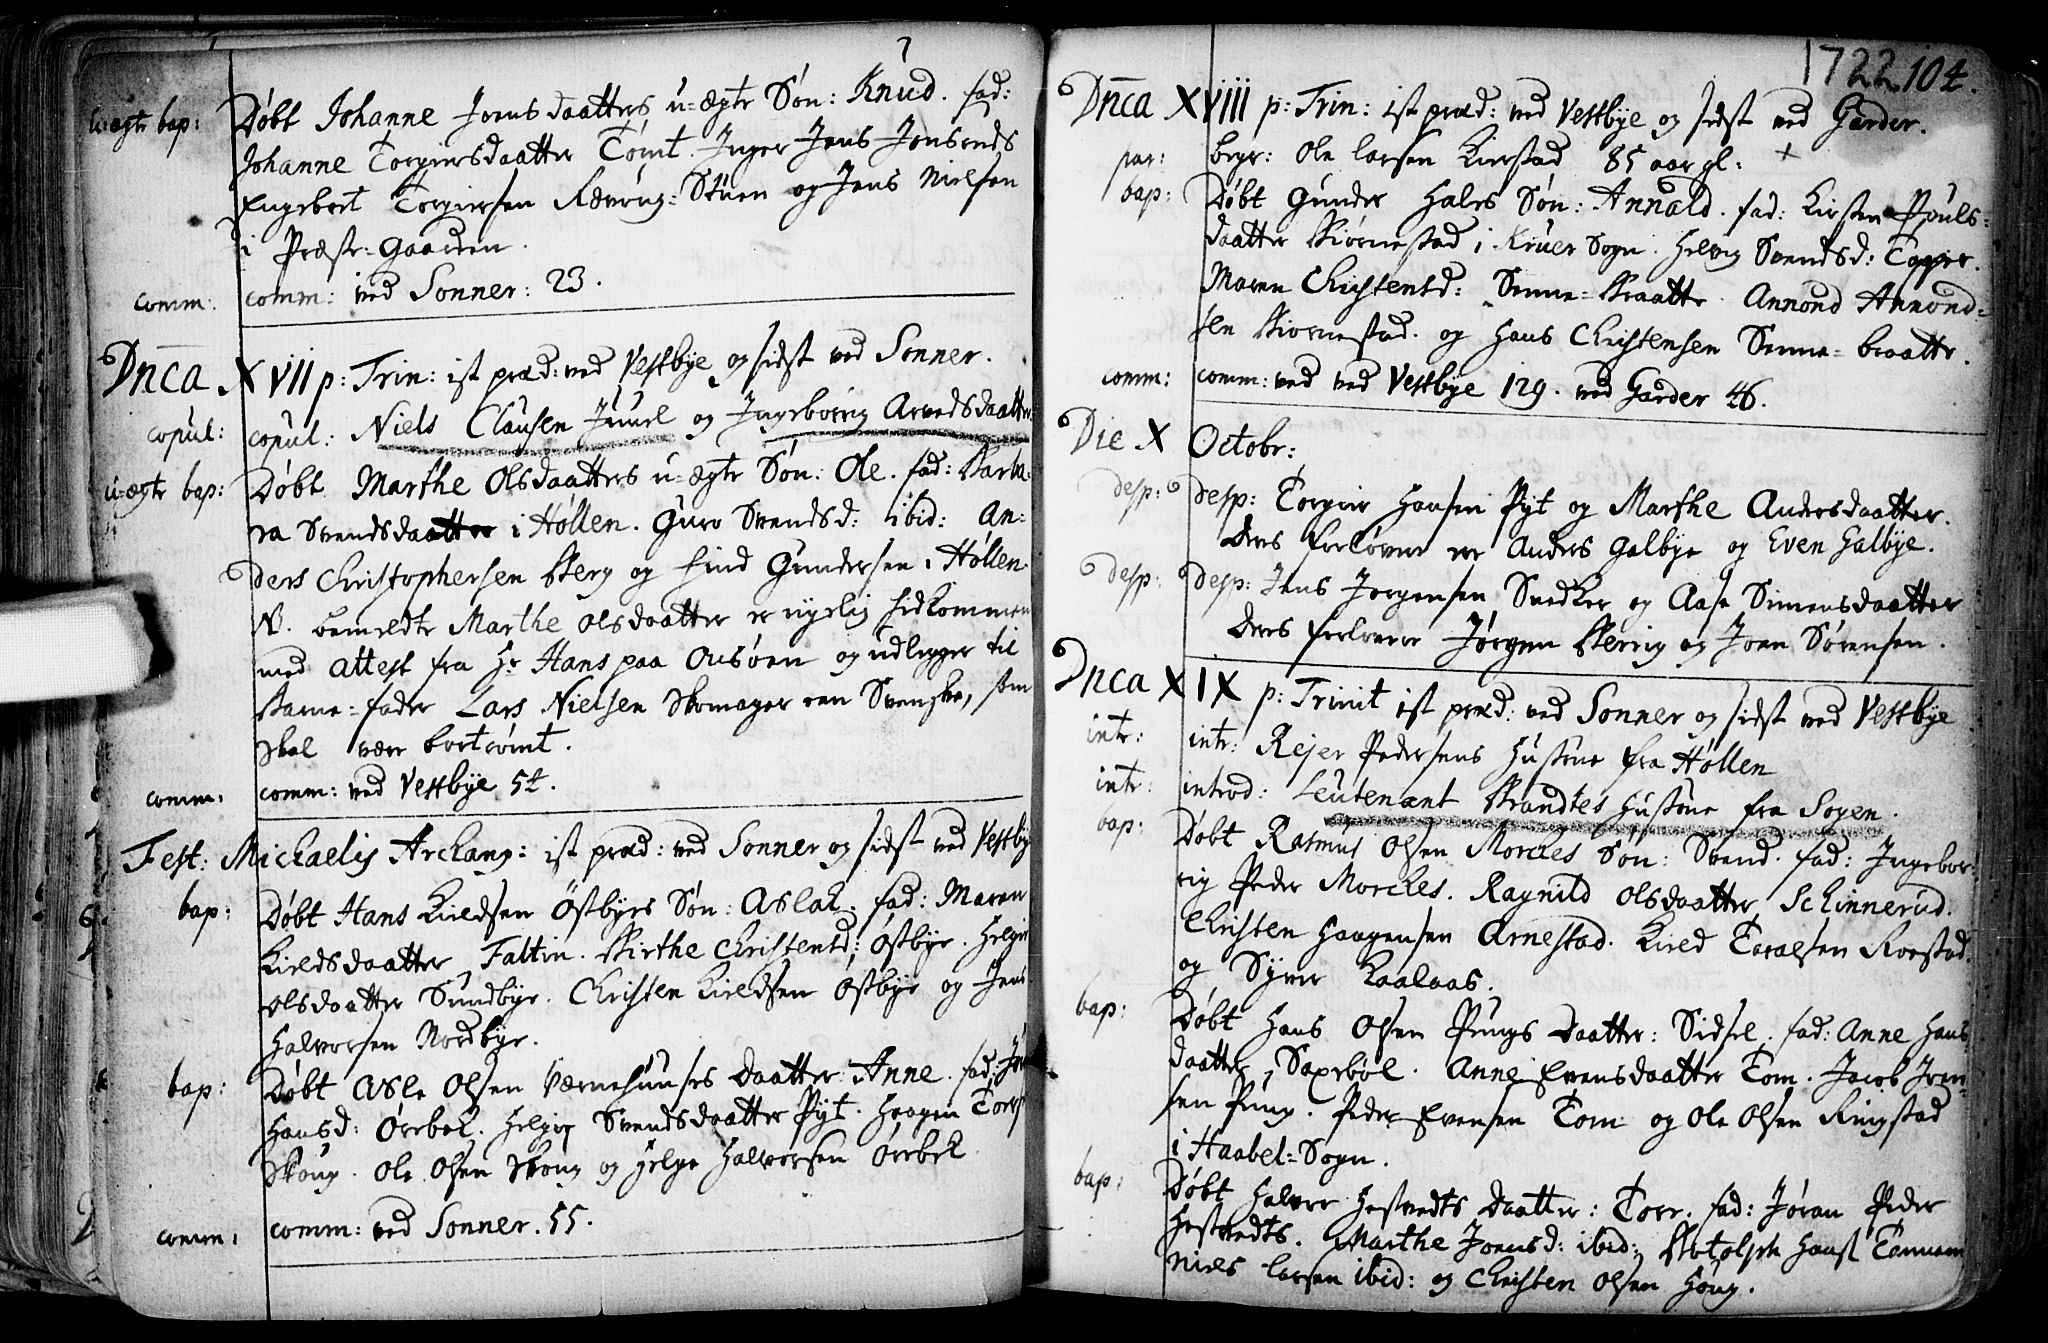 u-ægte bap: Døbt Johanne Joensdaatters u-ægte Søn: Knud. fad:
Johanne Torgiersdaatter Tomt. Inger Jens Jensens
Engebret Torgiersen Stuen og Jens Nielsen
i Præste-Gaarden.
comm: comm: ved Sonner: 23.
Dnca XVII p: Trin: ist præd: ved Vestbye og sidst ved Sonner.
copul: copul: Niels Clausen Juuel og Ingeborrig Arvedsdaatter
u-ægte bap: Døbt Marthe Olsdaatters u-ægte Søn: Ole. fad: Barba-
ra Svendsdaatter i Høllen. Guro Svendsd: ibid: An-
ders Christophersen Berg og Find Gundersen i Høllen
N. bemeldte Marthe Olsdaatter er nyelig hidkommen
med attest fra Hr Hans paa Onsøen og udlegger til
Barne-fader Lars Nielsen Skomager een Svenske, som
skal være bortrømt.
comm: comm: ved Vestbye 54.
Fest: Michaelis Archang: ist præd: ved Sonner og sidst ved Vestby
bap: Døbt Hans Kieldsen Østbyes Søn: Aslak. fad: Maren
Kieldsdaatter Faltin. Birthe Christensd: Østbye. Helgie
Olsdaatter Sundbye. Christen Kieldsen Østbye og Jens
Halvorsen Nordbye.
bap: Døbt Asle Olsen Værnehuuses Daatter: Anne. fad:
Hansd: Ørebek. Helgie Svendsdaatter Pyt. Haagen
Skoug. Ole Olsen Skoug og Helge Halvorsen Ørebek
comm: comm: ved Sonner. 55.
1722 104.
Dnca XVIII p: Trin: ist præd: ved Vestbye og sidst ved Garder.
begr: Ole Larsen Kierstad 85 aar gl: +
bap: Døbt Gunder Hales Søn: Annald. fad: Kirsten Povels-
daatter Biørnestad i Kruer Sogn. Helvig Svendsd: Topper.
Maren Christensd: Sonne-Braatte. Annond Annond-
sen Biornestad. og Hans Christensen Sonne-braatte.
comm: comm: ved ved Vestbye 129. ved Garder 46.
Die X Octobr:
desp: desp: Torgier Hansen Pyt og Marthe Andersdaatter.
Deres forlovere ere Anders Galbye og Even Galbye.
desp: desp: Jens Jørgensen Snedker og Aase Simensdaatter
Deres forlovere Jørgen Berrig og Joen Sørensen.
Dnca XIX p: Trinit ist præd: ved Sonner og sidst ved Vestbye
intr: intr: Rejer Pedersens Hustrue fra Høllen
intr: introd: Leutenant Brandtes Hustrue fra Sogen.
bap: Døbt Rasmus Olsen Morckes Søn: Svend. fad: Ingebor-
rig Peder Morckes. Ragnild Olsdaatter Schinnerud.
Christen Haagensen Arnestad. Kield Taralsen Roestad.
og Syver Kaalaas.
bap: Døbt Hans Olsen Pungs Daatter: Sidsel. fad: Anne Hans
daatter, Saxebøl. Anne Evensdaatter Tom. Jacob Joen-
sen Pung. Peder Evensen Tom og Ole Olsen Ringstad
i Haabel-Sogn.
bap: Døbt Halvor Hestvedts Daatter: Tore. fad: Jøran Peder
Hestvedts. Marthe Joensd: ibid: Botolph Hans
Niels Larsen ibid: og Christen Olsen Houg.